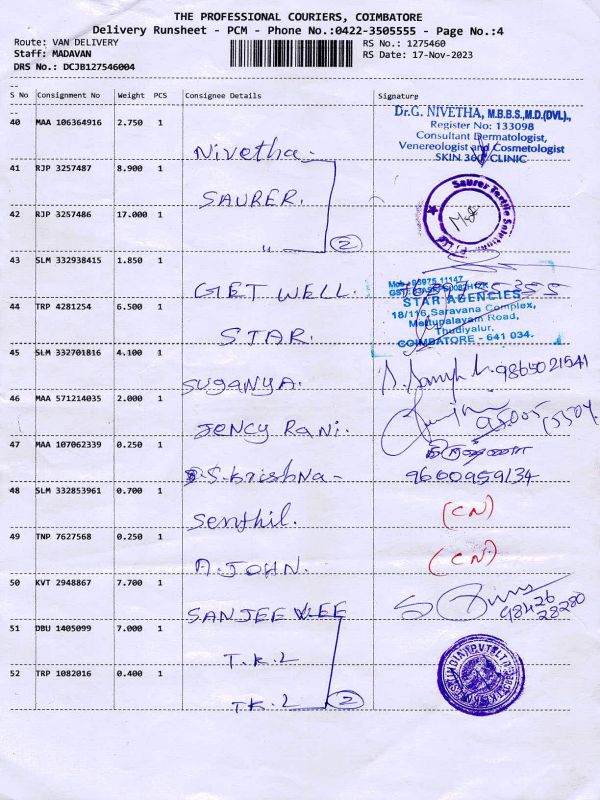 THE PROFESSIONAL COURIERS, COIMBATORE
Delivery Runsheet - PCM - Phone No.:0422-3505555 - Page No.:4
Route: VAN DELIVERY RS No.: 1275460
Staff: MADAVAN RS Date: 17-Nov-2023
DRS No.: DCJB127546004
S No Consignment No Weight PCS Consignee Details Signature
40 MAA 106364916 2.750 1 Nivetha
Dr.G. NIVETHA, M.B.B.S.,M.D.(DVL).,
Register No: 133098
Consultant Dermatologist,
Venereologist and Cosmetologist
SKIN 360 CLINIC
41 RJP 3257487 8.900 1 SAURER.
Saurer Textile Solutions (P) Ltd
42 RJP 3257486 17.000 1 " 2
43 SLM 332938415 1.850 1 GET WELL.
44 TRP 4281254 6.500 1 STAR.
STAR AGENCIES
18/116, Saravana Complex,
Mettupalayam Road,
Thudiyalur,
COIMBATORE - 641 034.
45 SLM 332701816 4.100 1 SUGANYA. 9865021541
46 MAA 571214035 2.000 1 JENCY RANI.
47 MAA 107062339 0.250 1 S.Krishna - 9600959134
48 SLM 332853961 0.700 1 Senthil. (CN)
49 TNP 7627568 0.250 1 A.JOHN. (CN)
50 KVT 2948867 7.700 1 SANJEEVEE 98426 28280
51 DBU 1405099 7.000 1 T.K.L
52 TRP 1082016 0.400 1 T.K.L 2